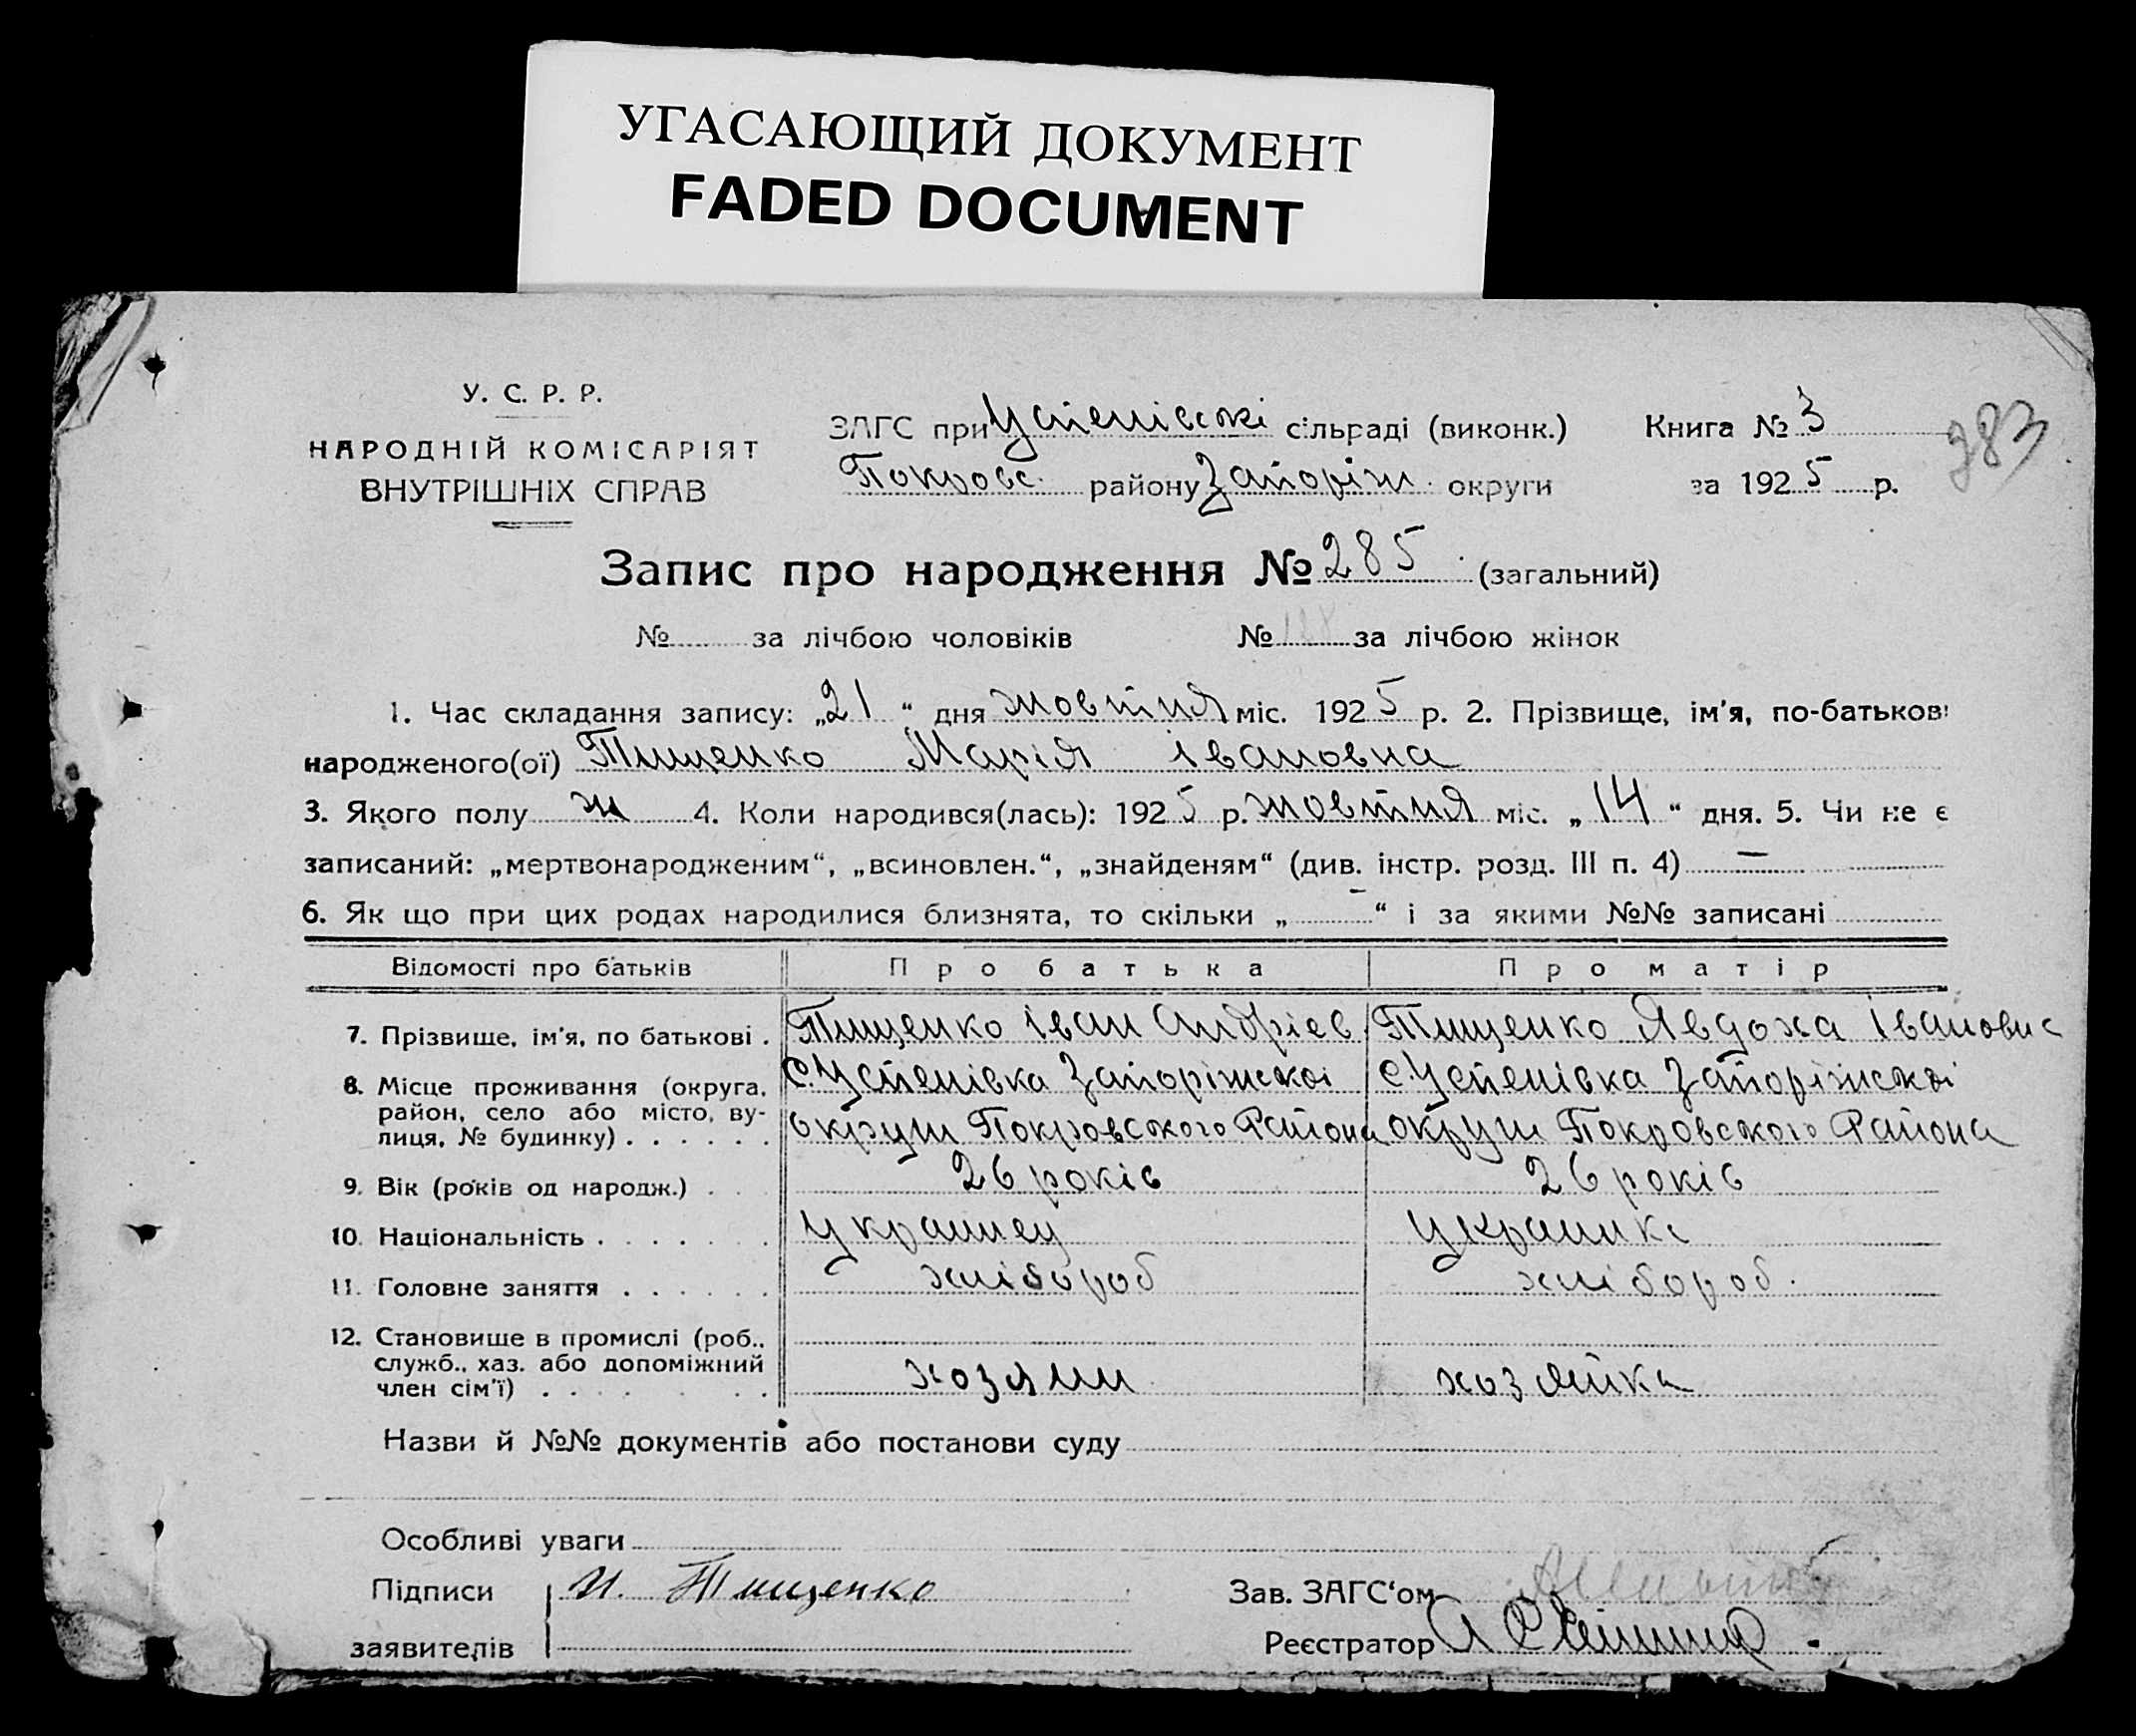 УГАСАЮЩИЙ ДОКУМЕНТ
FADED DOCUMENT
У. С. Р. Р.
НАРОДНІЙ КОМІСАРІЯТ
ВНУТРІШНІХ СПРАВ
ЗАГС при Успенівскі сільраді (виконк.)
Покровс. району Запоріж. округи
Книга № 3
за 1925 р.
283
Запис про народження № 285 (загальний)
№ за лічбою чоловіків № за лічбою жінок
1. Час складання запису: „21“ дня жовтня міс. 1925 р. 2. Прізвище, ім'я, по-батькові
народженого(ої) Тищенко Марія Івановна
3. Якого полу ж 4. Коли народився(лась): 1925 р. жовтня міс. „14“ дня. 5. Чи не є
записаний: „мертвонародженим“, „всиновлен.“, „знайденям“ (див. інстр. розд. III п. 4) —
6. Як що при цих родах народилися близнята, то скільки „ – “ і за якими №№ записані
Відомості про батьків Про батька Про матір
7. Прізвище, ім'я, по батькові . Тищенко Іван Андрієв Тищенко Явдоха Івановна
8. Місце проживання (округа, с. Успенівка Запоріжскоі с. Успенівка Запоріжскоі
район, село або місто, ву-
лиця, № будинку) . . . . . . округи Покровського Района округи Покровського Района
9. Вік (років од народж.) . . . 26 років 26 років
10. Національність . . . . . . . украинец украинка
11. Головне заняття . . . . . . хлібороб хлібороб.
12. Становище в промислі (роб.,
служб., хаз. або допоміжний
член сім'ї) . . . . . . . хозяин хозяйка
Назви й №№ документів або постанови суду
Особливі уваги
Підписи И. Тищенко Зав. ЗАГС‘ом
заявителів Реєстратор